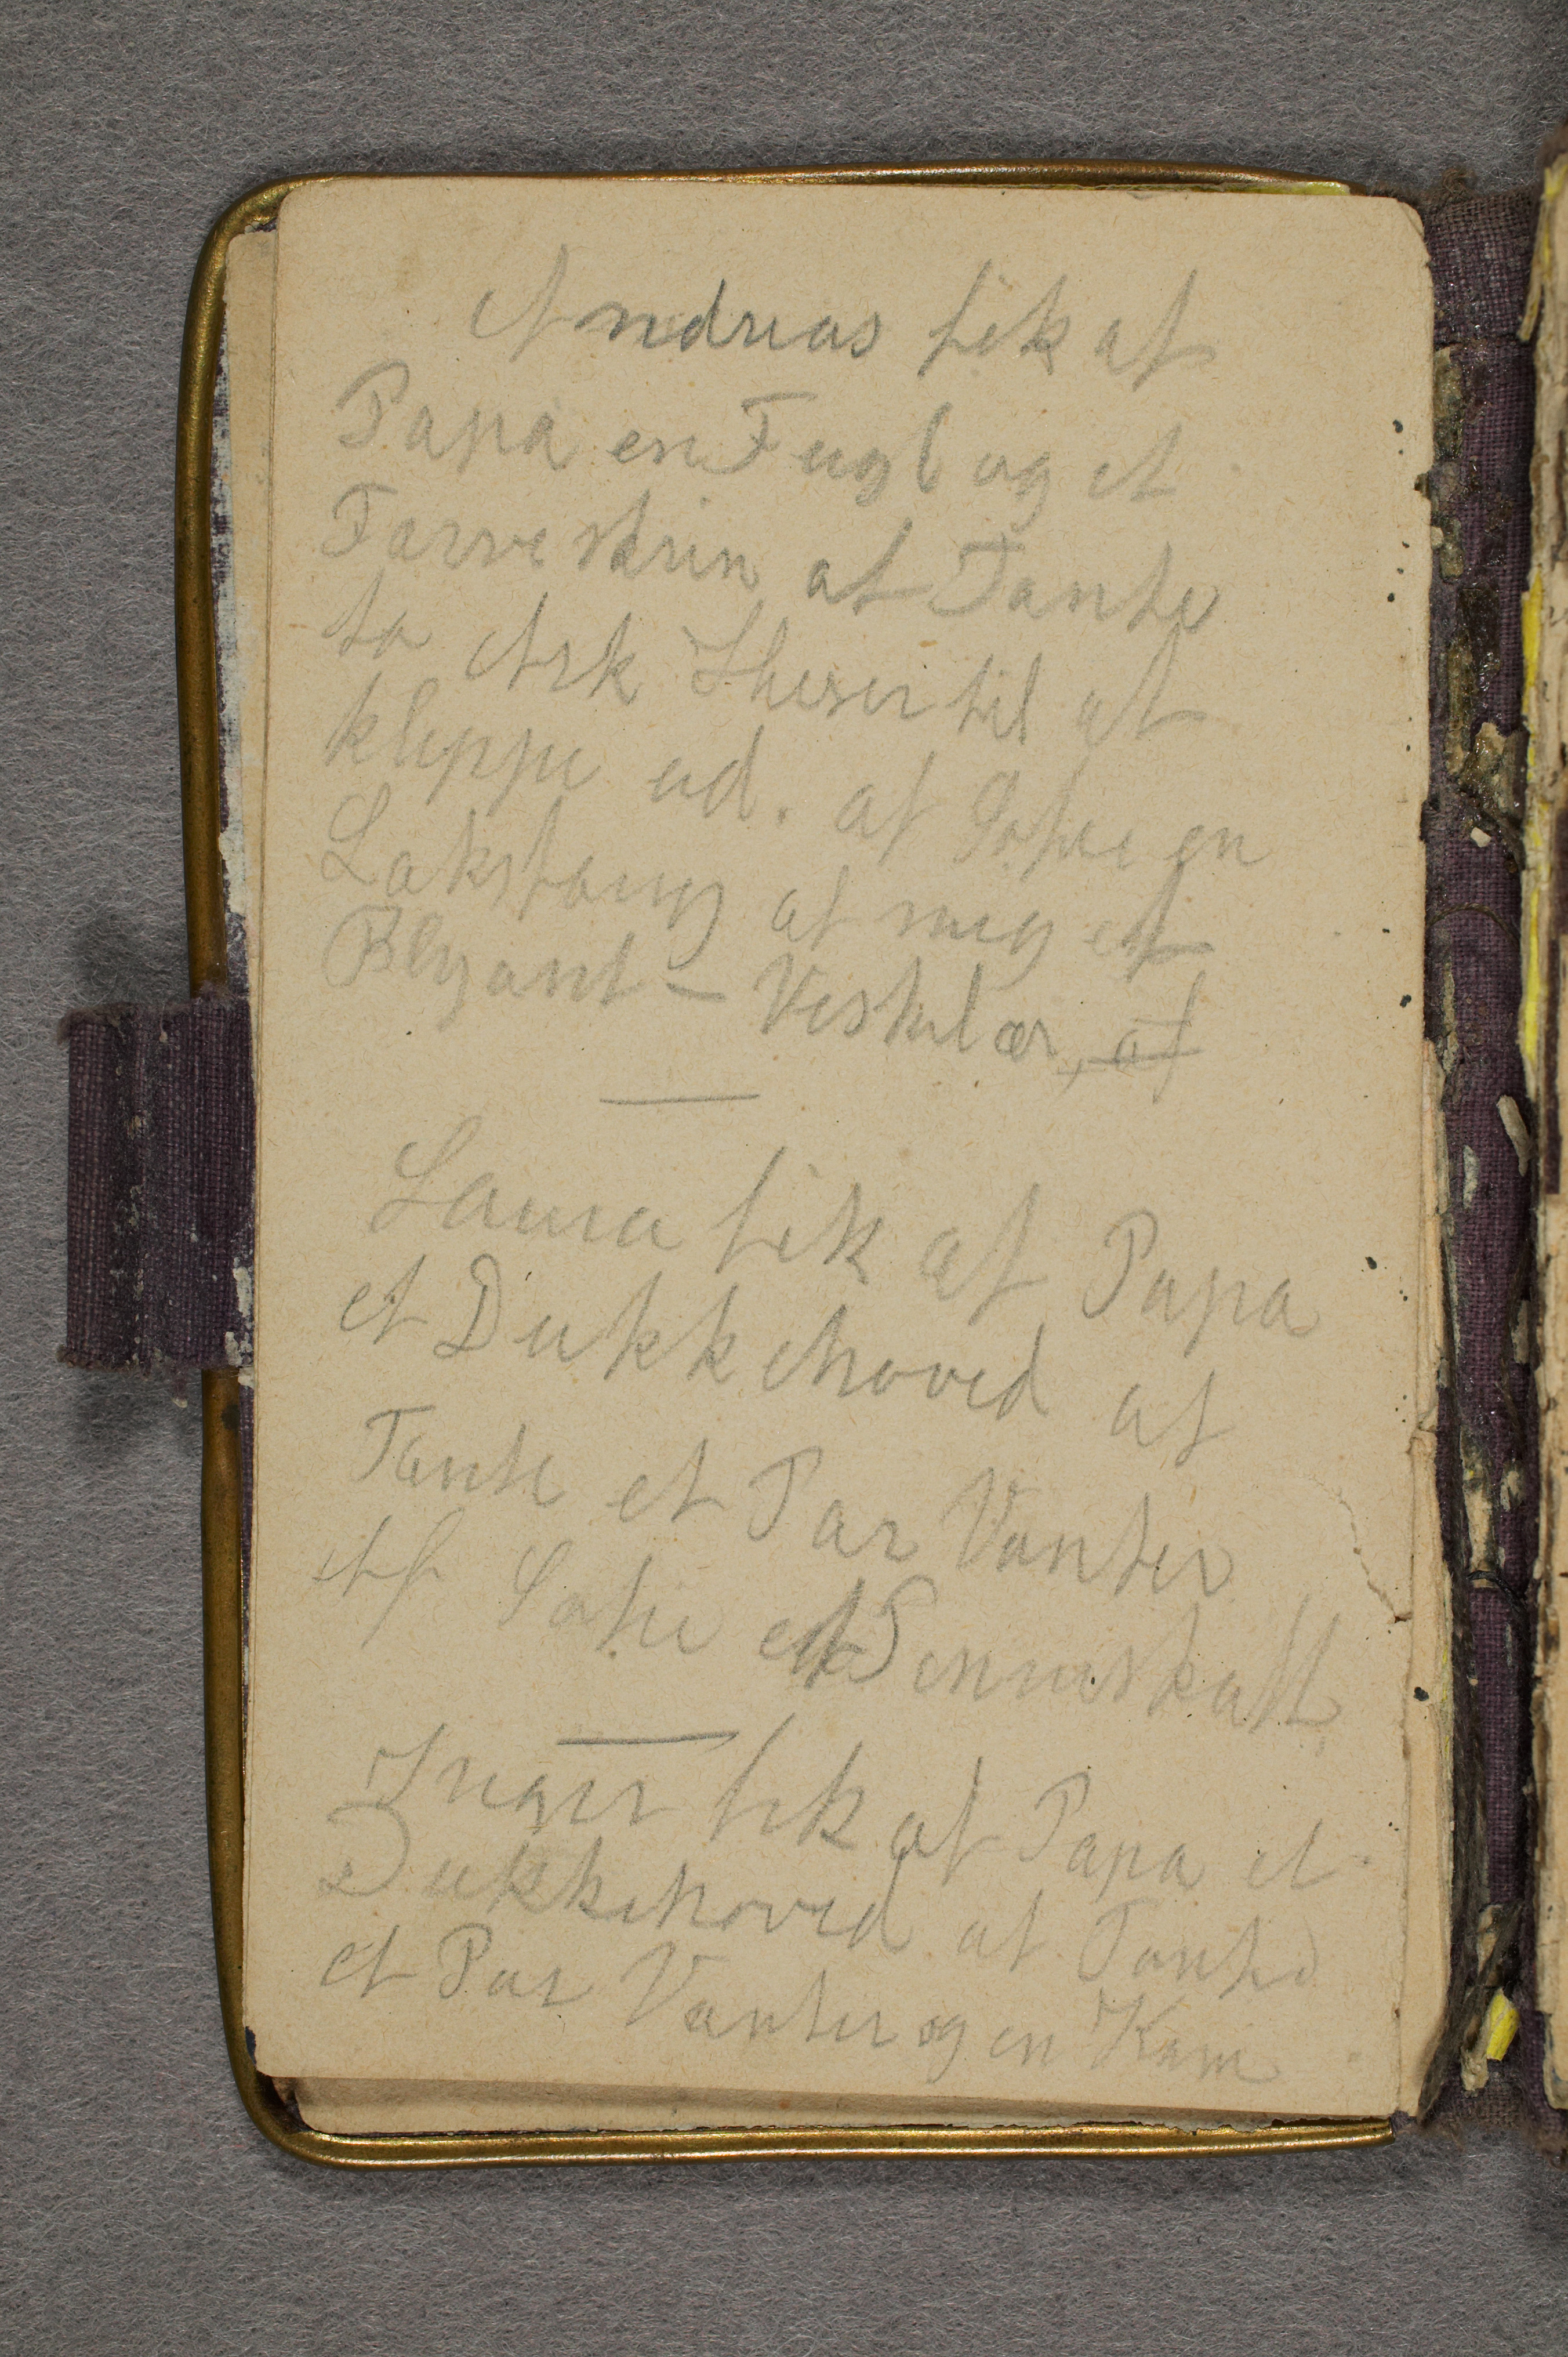 Andreas fik af
Papa en Fugl og et
Farveskrin af Tante
to Ark Theser til at
klippe ud. af Sofie en
Lakstang af mig et
Blyant - Viskelær, af
Laura fik af Papa
et Dukkehoved af
Tante et Par Vanter
af Sofie et Penneskaft,
Inger fik af Papa et
Dukkehoved af Tante
et Par Vanter og en Kam